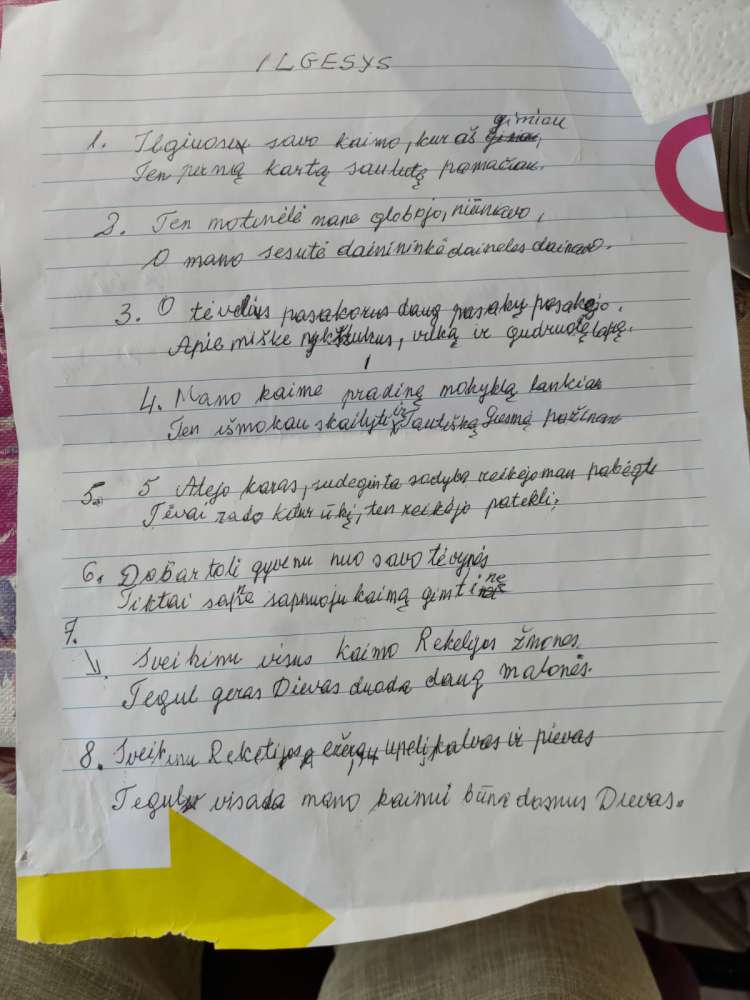 ILGESYS
1. Ilgiuosi savo kaimo, kur aš gimiau
Ten pirmą kartą saulutę pamačiau.
2. Ten motinėlė mane globojo, niūniavo,
O mano sesutė dainininkė daineles dainavo.
3. O tėvelius pasakorus daug pasakų pasakojo.
Apie miške nykštukus, vilką ir gudruolę lapę.
4. Mano kaime pradinę mokyklą lankiau
Ten išmokau skaityti ir Tautišką Giesmę pažinau
5. 5 Atejo karas, sudeginta sodyba reikėjo man pabėgti
Tėvai rado kitur ūkį, ten reikėjo patekti.
6. Dabar toli gyvenu nuo savo tėvynės
Tiktai sapne sapnuoju kaimą gimtinę
7.
Sveikinu visus kaimo Reketijos žmones
Tegul geras Dievas duoda daug malonės.
8. Sveikinu Reketijos ežerą, upelį kalvas ir pievas
Tegul visada mano kaimui būna dosnus Dievas.